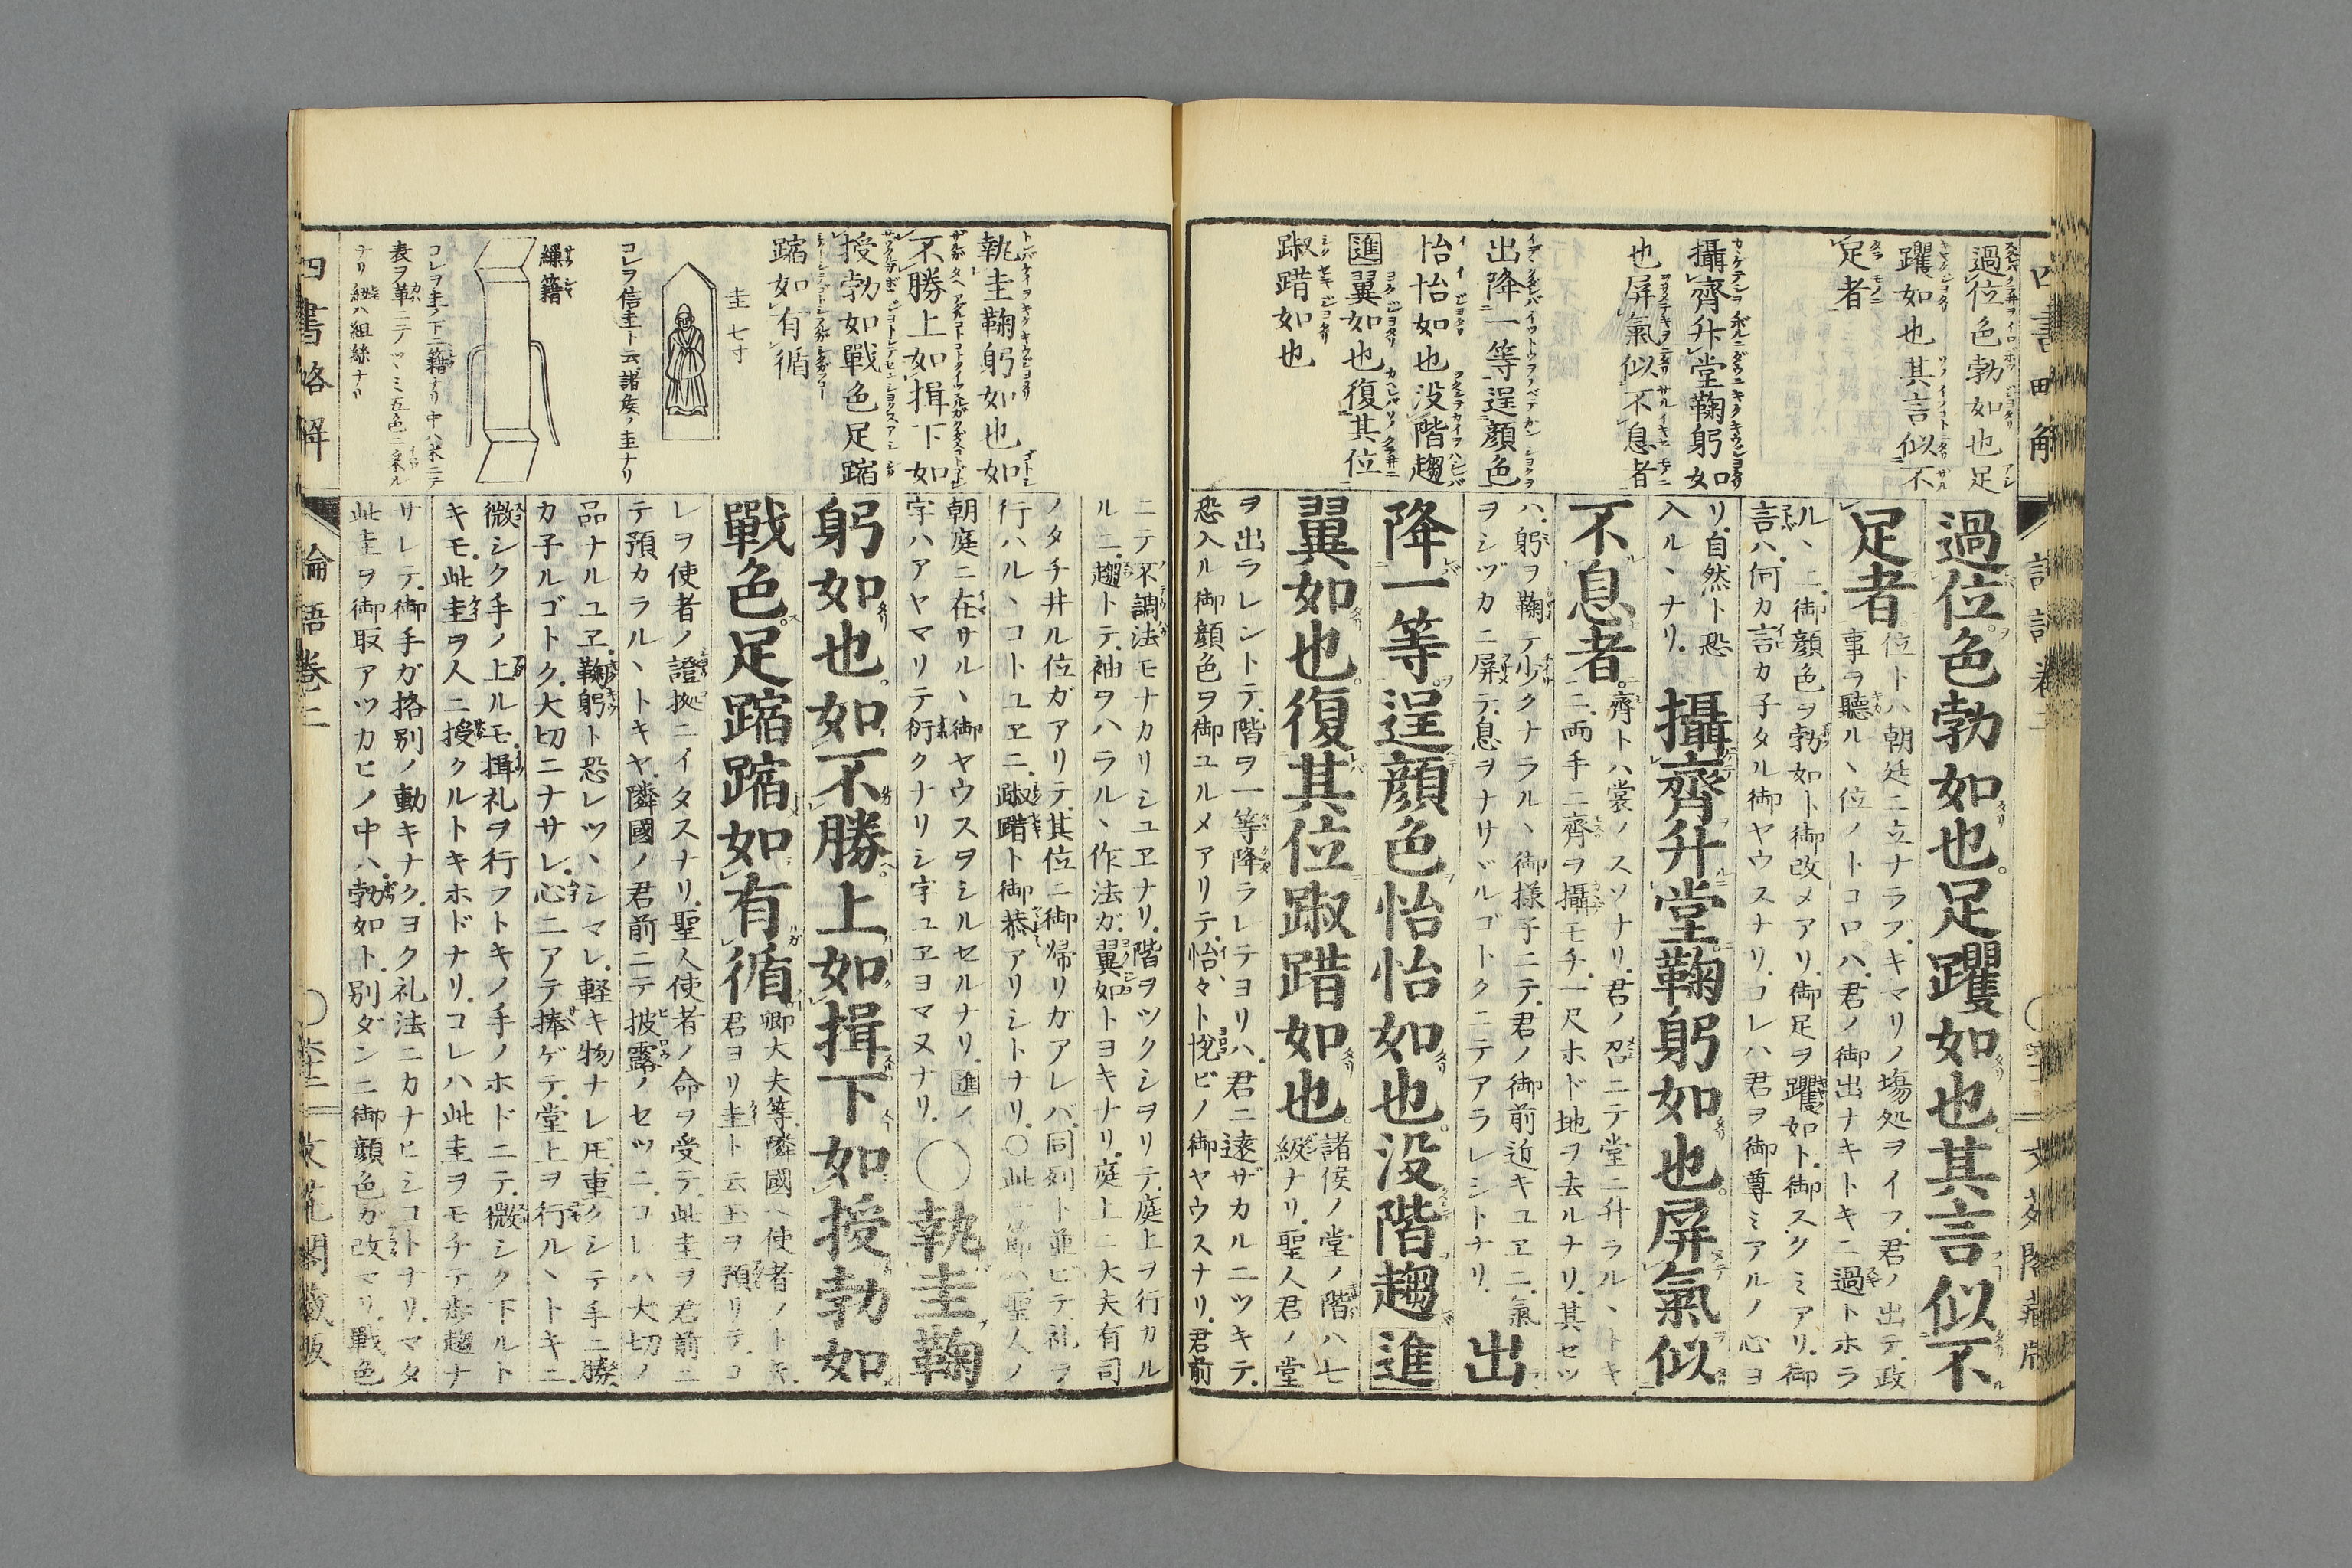 過位色勃如也足
躩如也其言似不
足者
攝齊升堂鞠躬如
也屏氣似不息者
出降一等逞顔色
怡怡如也没階趨
進翼如也復其位
踧踖如也
過位色勃如也足躩如也其言似不
足者
位トハ朝廷ニ立ナラブキマリノ塲処ヲイフ君ノ出テ政
事ヲ聽ルヽ位ノトコロハ君ノ御出ナキトキニ過トホラ
ルヽニ御顔色ヲ勃如ト御改メアリ御足ヲ躩如ト御スクミアリ御
言ハ何カ言カ子タル御ヤウスナリコレハ君ヲ御尊ミアルノ心ヨ
リ自然ト恐
入ルヽナリ
攝齊升堂鞠躬如也屏氣似
不息者
齊トハ裳ノスソナリ君ノ召ニテ堂ニ升ラルヽトキ
ニ両手ニ齊ヲ攝モチ一尺ホド地ヲ去ルナリ其セツ
ハ躬ヲ鞠テ少クナラルヽ御様子ニテ君ノ御前近キユヱニ氣
ヲシヅカニ屏テ息ヲナサヾルゴトクニテアラレシトナリ
出
降一等逞顔色怡怡如也没階趨進
翼如也復其位踧踖如也
諸侯ノ堂ノ階ハ七
級ナリ聖人君ノ堂
ヲ出ラレントテ階ヲ一等降ラレテヨリハ君ニ遠ザカルニツキテ
恐入ル御顔色ヲ御ユルメアリテ怡々ト悦ビノ御ヤウスナリ君前
執圭鞠躬如也如
不勝上如揖下如
授勃如戰色足蹜
蹜如有循
圭七寸
コレヲ信圭ト云諸侯ノ圭ナリ
繅籍
コレヲ圭ノ下ニ籍ナリ中ハ木ニテ
表ヲ革ニテツヽミ五色ニ采ル
ナリ紐ハ組絲ナリ
ニテ不調法モナカリシユヱナリ階ヲツクシヲリテ庭上ヲ行カル
ルニ趨トテ袖ヲハラルヽ作法ガ翼如トヨキナリ庭上ニ大夫有司
ノタチ井ル位ガアリテ其位ニ御帰リガアレバ同列ト並ビテ礼ヲ
行ハルヽコトユヱニ踧踖ト御恭アリシトナリ〇此一節ハ聖人ノ
朝庭ニ在サルヽ御ヤウスヲシルセルナリ進ノ
字ハアヤマリテ衍クナリシ字ユヱヨマヌナリ
〇執圭鞠
躬如也如不勝上如揖下如授勃如
戰色足蹜蹜如有循
卿大夫等隣國ヘ使者ノトキ
君ヨリ圭ト云玉ヲ預リテコ
レヲ使者ノ證拠ニイタスナリ聖人使者ノ命ヲ受テ此圭ヲ君前ニ
テ預カラルヽトキヤ隣國ノ君前ニテ披露ノセツニコレハ大切ノ
品ナルユヱ鞠躬ト恐レツヽシマレ軽キ物ナレ𪜈重クシテ手ニ勝
カ子ルゴトク大切ニナサレ心ニアテ捧ゲテ堂上ヲ行ルヽトキニ
微シク手ノ上ルモ揖礼ヲ行フトキノ手ノホドニテ微シク下ルト
キモ此圭ヲ人ニ授クルトキホドナリコレハ此圭ヲモチテ歩趨ナ
サレテ御手ガ格別ノ動キナクヨク礼法ニカナヒシコトナリマタ
此圭ヲ御取アツカヒノ中ハ勃如ト別ダンニ御顔色ガ改マリ戰色
四書略解
論語巻二
〇六十二
文花閣蔵版